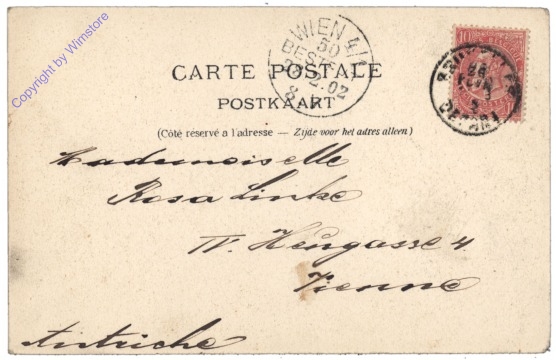 CARTE POSTALE
POSTKAART
(Côté réservé a l'adresse — Zijde voor het adres alleen)
Mademoiselle
Rosa Linke
IV. Heugasse 4
Vienne
Autriche
WIEN 4/1
50
BESTELLT
02
8
10
DEPART
copyright by Wimstore